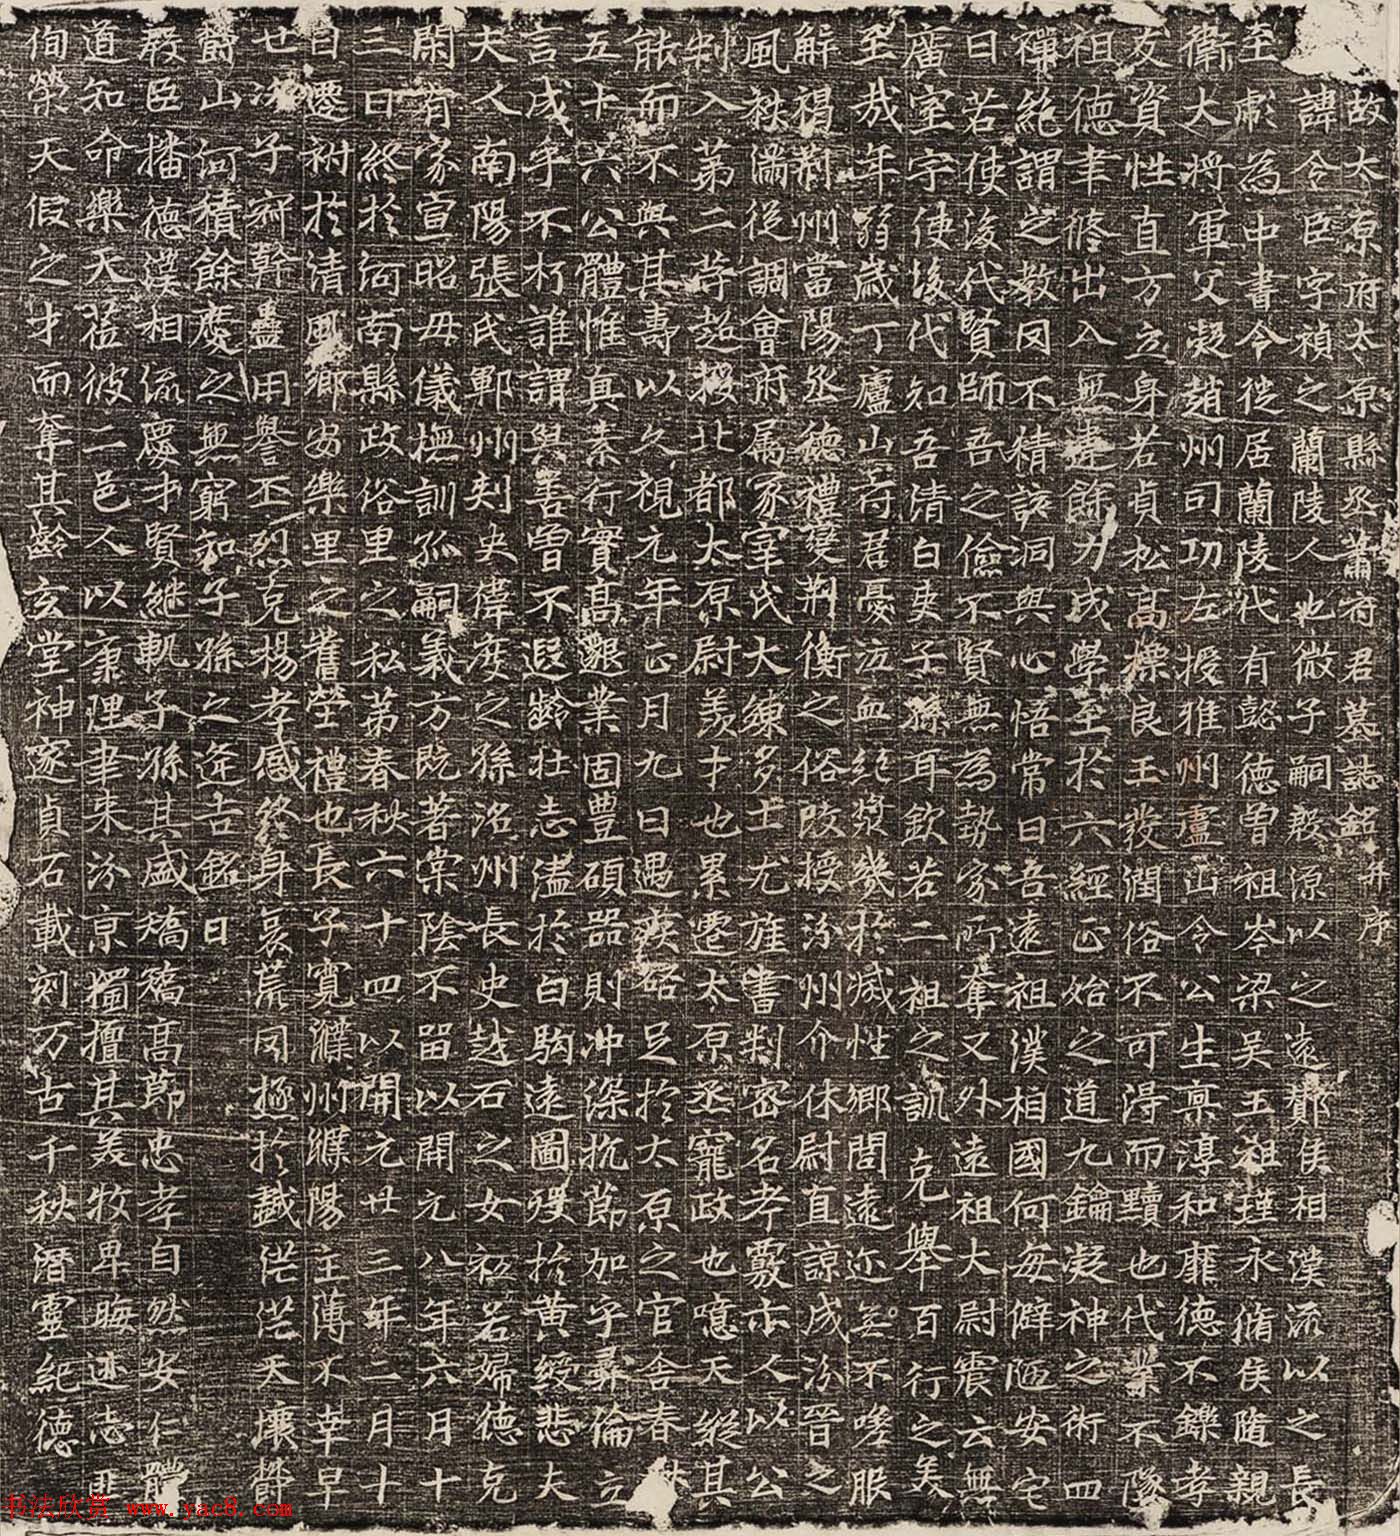 故太原府太原縣丞蕭府君墓誌銘并序
諱令臣字禎之蘭陵人也微子嗣殷源以之遠酇侯相漢流以之長
至彪為中書令徙居蘭陵代有懿德曾祖岑梁吳王祖瑾永脩侯隨親
衛大將軍父凝趙州司功左授雅州盧山令公生稟淳和靡德不鑠孝
友資性直方立身若貞松高操良玉發潤俗不可得而黷也代業不墜
祖德聿脩出入無違餘力成學至於六經正始之道九鑰凝神之術四
禪絕謂之教罔不精該洞與心悟常曰吾遠祖漢相國何每僻陋安宅
曰若使後代賢師吾之儉不賢無為勢家所奪又外遠祖大尉震云無
廣室宇使後代知吾清白吏子孫耳欽若二祖之訓克舉百行之美
至哉年弱歲丁廬山府君憂泣血絕漿幾於滅性鄉閭遠迩無不嗟服
解褐荊州當陽丞德禮變荊衡之俗改授汾州介休尉直諒成汾晉之
風秩滿從調會府属冢宰氏大練多士尤旌書判密名考覈亦人以公
判入第二等超授北都太原尉羨才也累遷太原丞寵政也噫天縱其
能而不與其壽以久視元年正月九日遇疾啓足於太原之官舍春秋
五十六公體惟真素行實高懿業固豐碩器則沖深抗節加乎彝倫立
言成乎不朽誰謂與善曾不遐齡壯志溘於白駒遠圖歿於黃綬悲夫
夫人南陽張氏鄆州刾史偉度之孫洺州長史越石之女祗若婦德克
閑有家宣昭母儀撫訓孤嗣義方旣著棠陰不留以開元八年六月十
三日終於河南縣政俗里之私苐春秋六十四以開元廿三年二月十
日遷祔於清風鄉安樂里之舊塋禮也長子寬濮州濮陽主薄不幸早
世次子寄幹蠱用譽丕烈克楊孝感終身哀荒罔極於戲茫茫天壤聲
爵山河積餘慶之無窮知子孫之逢吉銘曰
殷臣播德漢相流慶才賢継軌子孫其盛矯矯高節忠孝自然安仁體
道知命樂天莅彼二邑人以康理聿來汾京獨擅其美牧卑晦迹志
佝榮天假之才而奪其齡玄堂神邃貞石載刻万古千秋潛靈紀德
书法欣赏 www.yac8.com